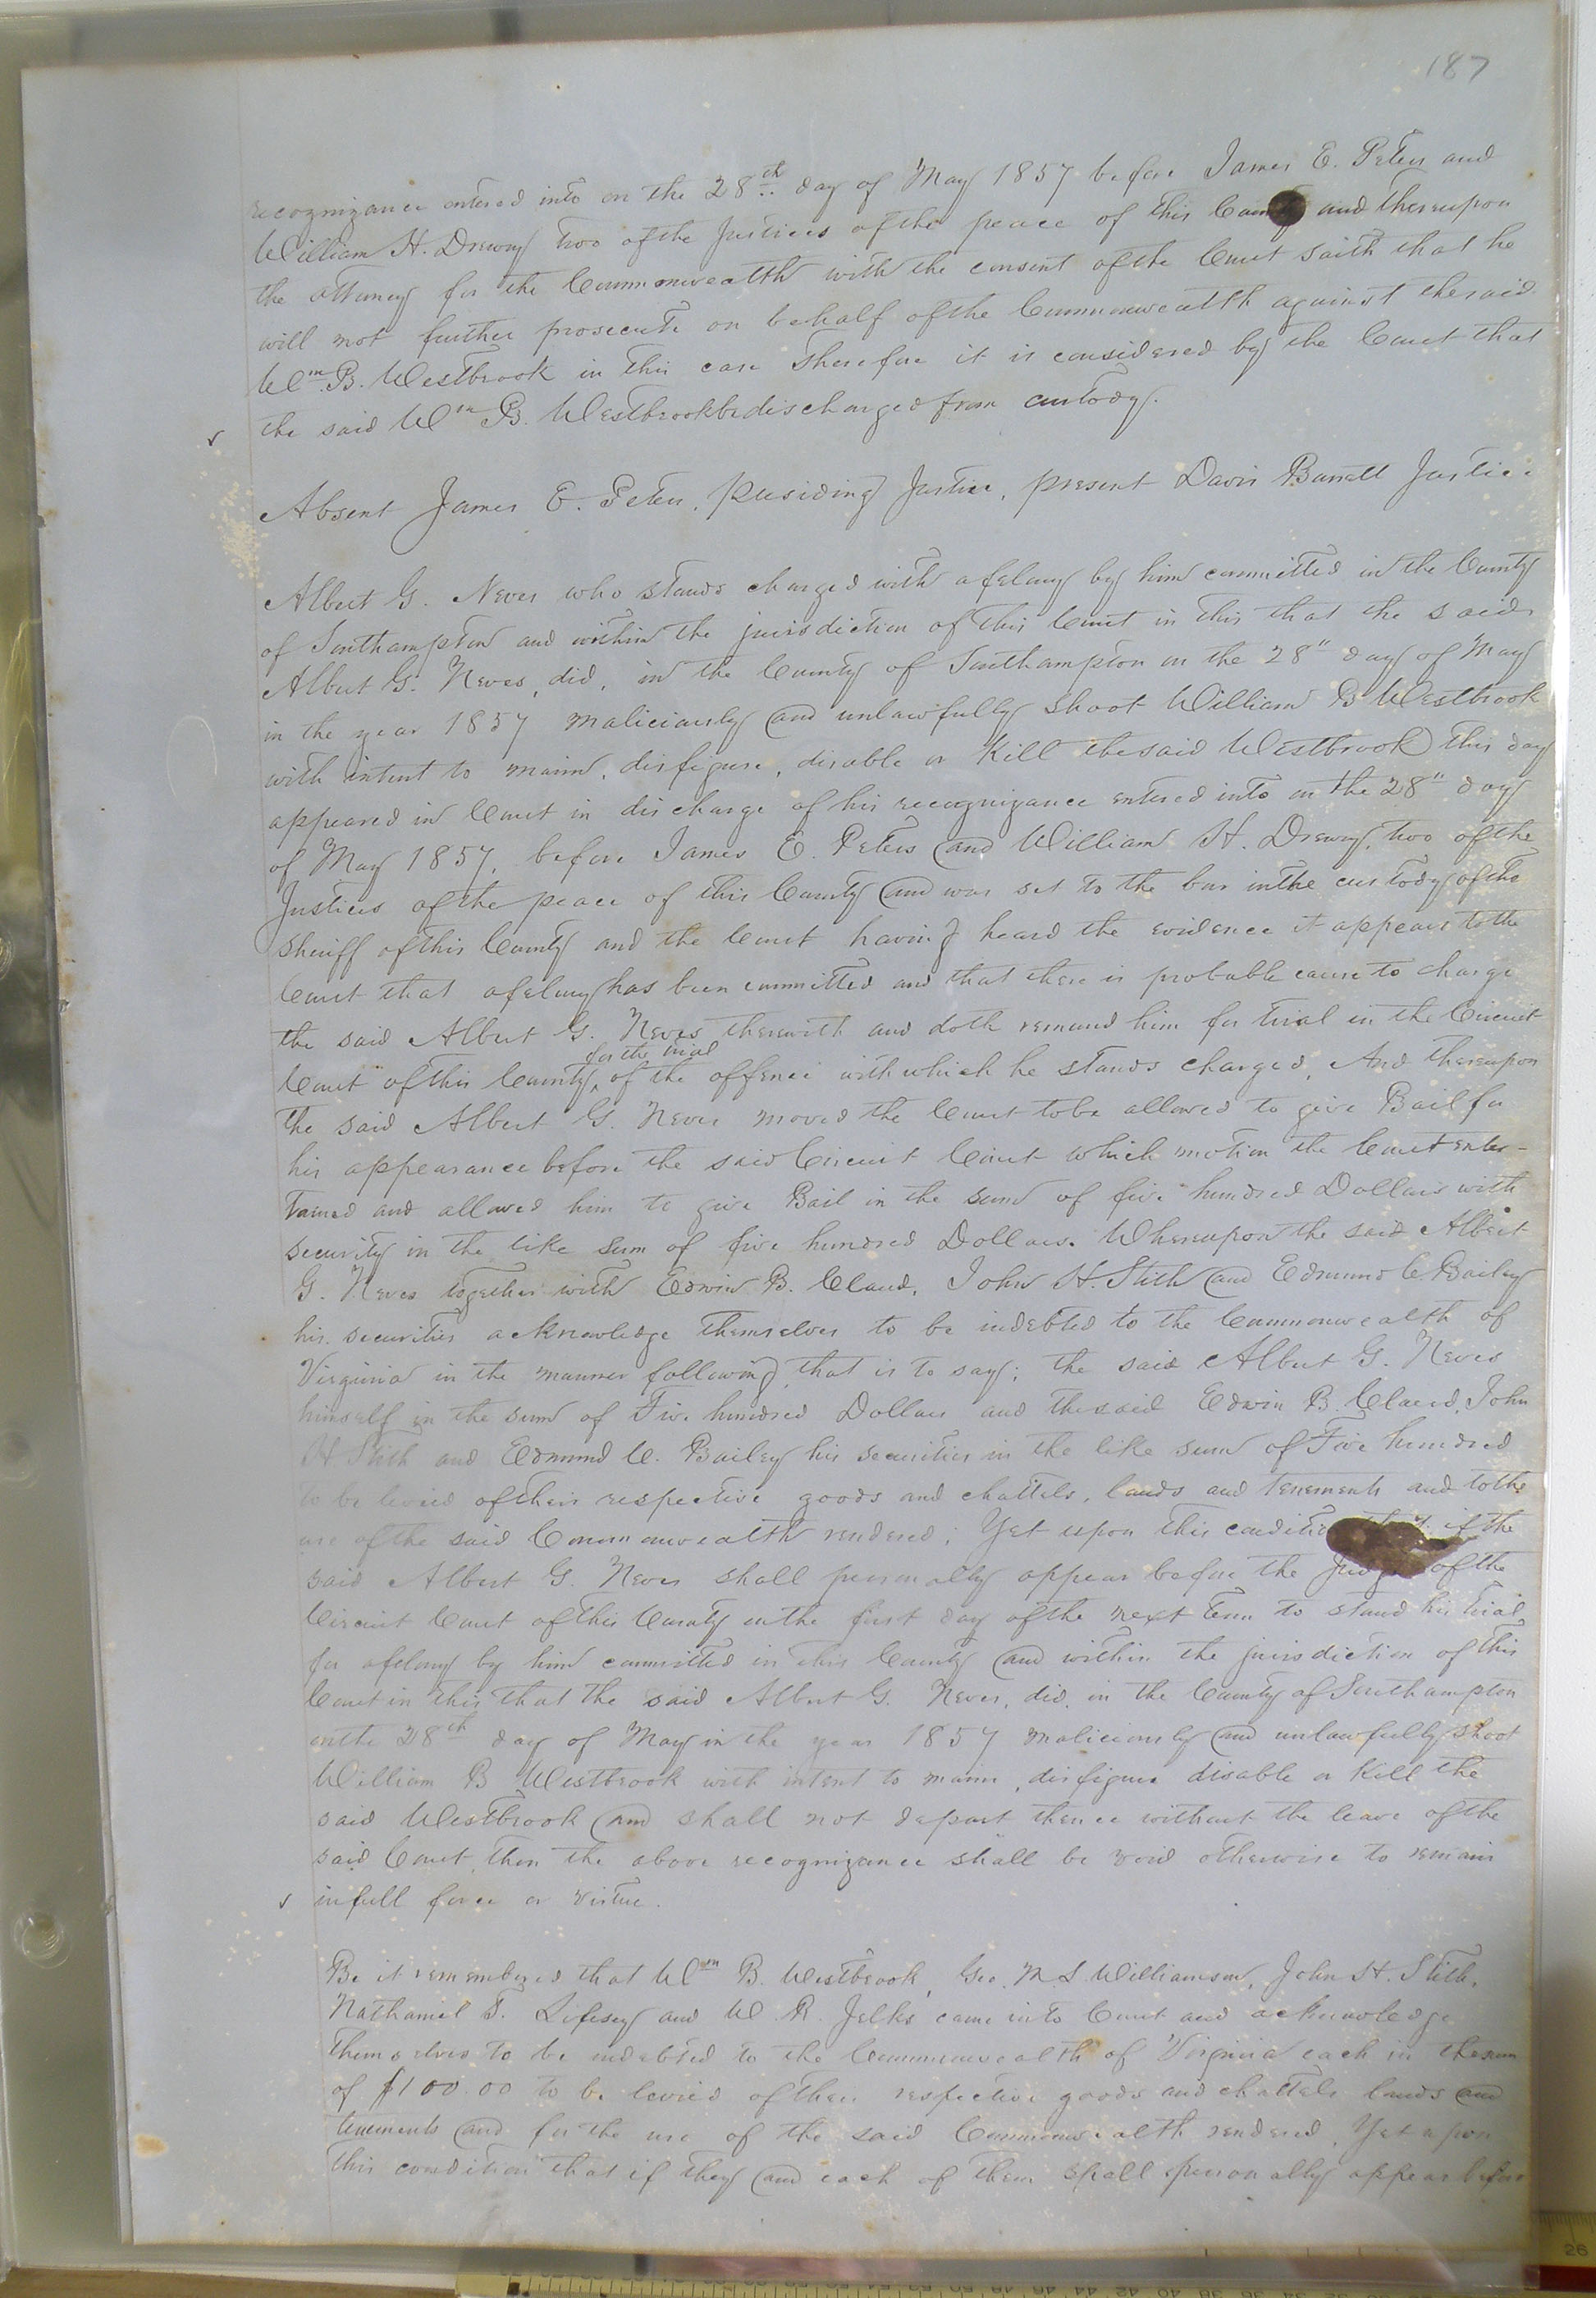 187
recognizance entered into on the 28th day of May 1857 before James E. Peters and
William H. Drewry two of the Justices of the peace of this County and thereupon
the attorney for the Commonwealth with the consent of the Court saith that he
will not further prosecute on behalf of the Commonwealth against the said
Wm. B. Westbrook in this case Therefore it is considered by the Court that
the said Wm B. Westbrook be discharged from custody.
Absent James E. Peters, Presiding Justice, present Davis Barrett Justice
Albert G. Neves who stands charged with a felony by him committed in the County
of Southampton and within the jurisdiction of this Court in this that the said
Albert G. Neves, did, in the County of Southampton on the 28" day of May
in the year 1857 maliciously and unlawfully shoot William B Westbrook
with intent to maim, disfigure, disable or Kill the said Westbrook this day
appeared in Court in discharge of his recognizance entered into on the 28" day
of May 1857, before James E. Peters and William H. Drewry, two of the
Justices of the peace of this County and was set to the bar in the custody of the
Sheriff of this County and the Court having heard the evidence it appears to the
Court that a felony has been committed and that there is probable cause to charge
the said Albert G. Neves therewith and doth remand him for trial in the Circuit
for the trial
Court of this County, of the offence with which he stands charged, And thereupon
the said Albert G. Neves moved the Court to be allowed to give Bail for
his appearance before the said Circuit Court which motion the Court enter-
tained and allowed him to give Bail in the sum of five hundred Dollars with
security in the like sum of five hundred Dollars. Whereupon the said Albert
G. Neves together with Edwin B. Claud, John H. Stith and Edmund C. Bailey
his securities acknowledge themselves to be indebted to the Commonwealth of
Virginia in the manner following, that is to say; the said Albert G. Neves
himself in the sum of Five hundred Dollars and the said Edwin B. Claud, John
H Stith and Edmund C. Bailey his securities in the like sum of Five hundred
to be levied of their respective goods and chattels, lands and tenements and to the
use of the said Commonwealth rendered; Yet upon this condition that if the
said Albert G. Neves shall personally appear before the Judge of the
Circuit Court of this County on the first day of the next term to stand his trial
for a felony by him committed in this County and within the jurisdiction of this
Court in this that the said Albert G. Neves, did, in the County of Southampton
on the 28th day of May in the year 1857 maliciously and unlawfully shoot
William B Westbrook with intent to maim, disfigure disable or Kill the
said Westbrook and shall not depart thence without the leave of the
said Court, then the above recognizance shall be void otherwise to remain
in full force or virtue.
Be it remembered that Wm B. Westbrook, Geo. M S Williamson, John H. Stith,
Nathaniel T. Lifesey and W. R. Jelks came into Court and acknowledge
themselves to be indebted to the Commonwealth of Virginia each in the sum
of $100.00 to be levied of their respective goods and chattels lands and
tenements and for the use of the said Commonwealth rendered, Yet upon
this condition that if they and each of them shall personally appear before
26